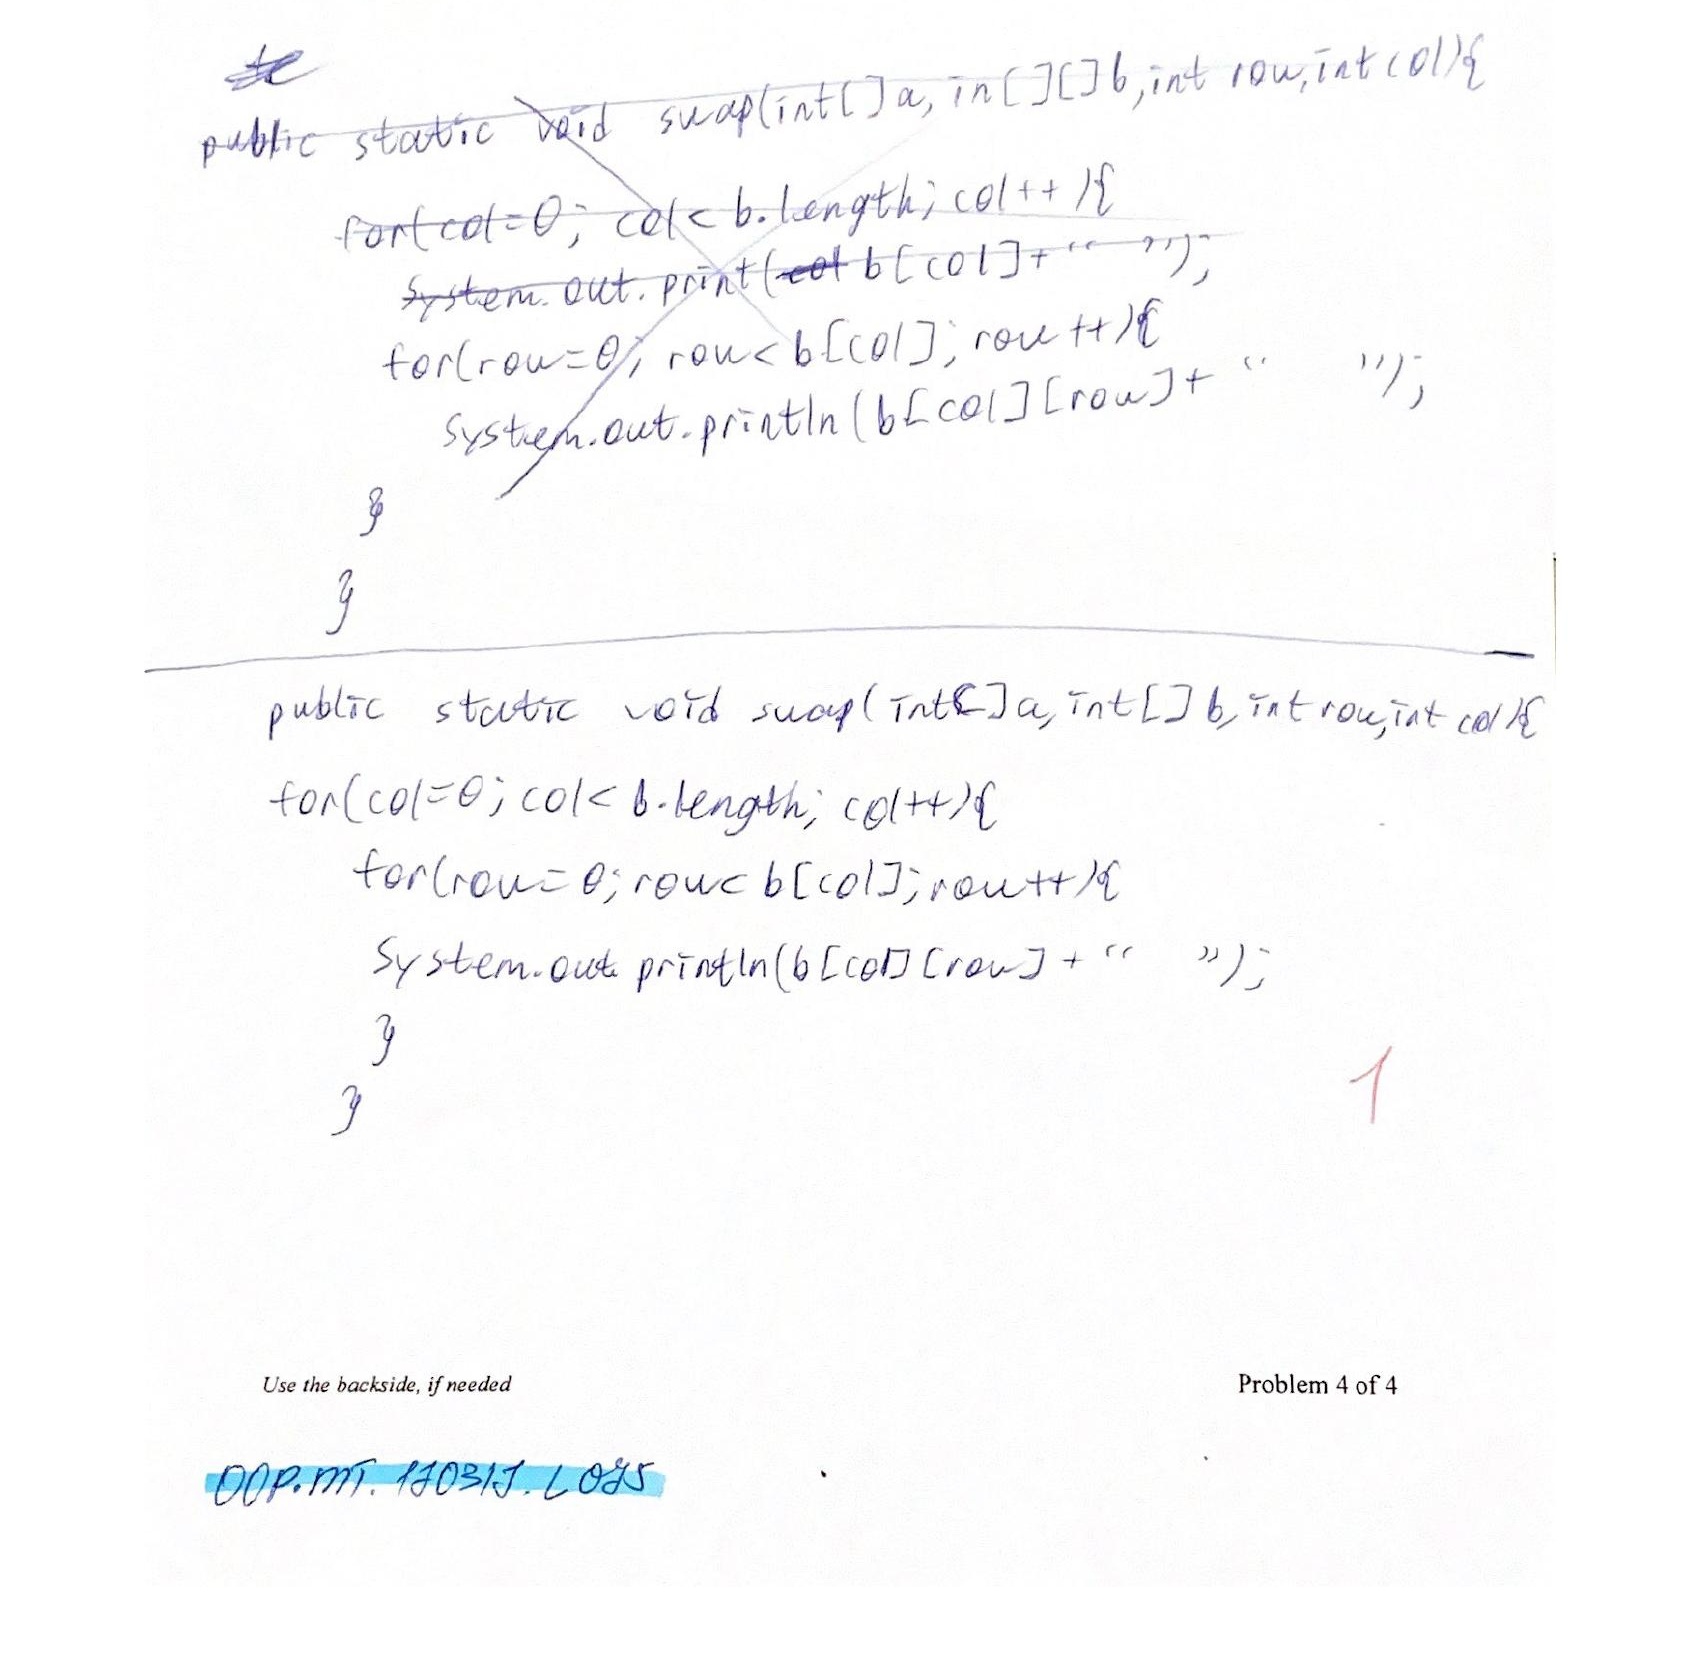 public static void swap(int[] a, in[][] b, int row, int col){
for(col=0; col < b.length; col++){
System.out.print(col b[col] + " ");
for(row=0; row < b[col]; row++){
System.out.println(b[col][row] + " ");
}
}
public static void swap(int[] a, int[] b, int row, int col){
for(col=0; col < b.length; col++){
for(row=0; row < b[col]; row++){
System.out.println(b[col][row] + " ");
}
}
1
Use the backside, if needed
Problem 4 of 4